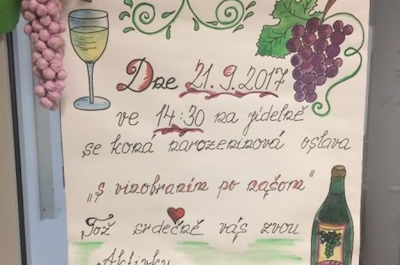 Dne 21.9.2017
ve 14:30 na jídelně
se koná narozeninová oslava
„s vinobraním po našom"
Tož srdečně vás zvou
Aktivky